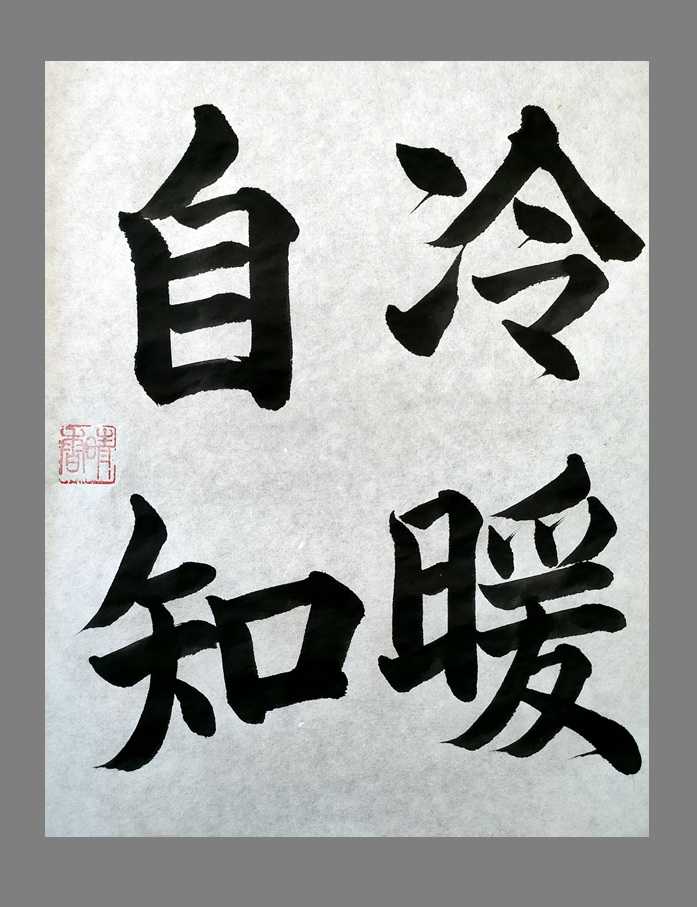 冷暖
自知
晴書